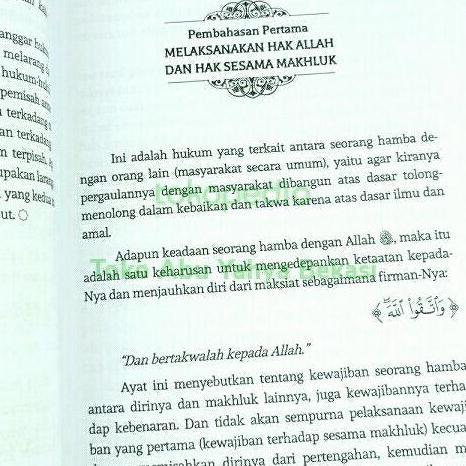 anggar
melarang d
hukum-huk
pemisah
terkadang
an terkadang
terpisah,
upakan
yang kedua
ut. O
Pembahasan Pertama
MELAKSANAKAN HAK ALLAH
DAN HAK SESAMA MAKHLUK
Ini adalah hukum yang terkait antara seorang hamba de-
ngan orang lain (masyarakat secara umum), yaitu agar kiranya
pergaulannya dengan masyarakat dibangun atas dasar tolong-
menolong dalam kebaikan dan takwa karena atas dasar ilmu dan
amal.
Adapun keadaan seorang hamba dengan Allah ﷻ, maka itu
adalah satu keharusan untuk mengedepankan ketaatan kepada-
Nya dan menjauhkan diri dari maksiat sebagaimana firman-Nya:
﴿ وَاتَّقُوا اللَّهَ ﴾
“Dan bertakwalah kepada Allah.”
Ayat ini menyebutkan tentang kewajiban seorang hamba
antara dirinya dan makhluk lainnya, juga kewajibannya terha-
dap kebenaran. Dan tidak akan sempurna pelaksanaan kewaji-
ban yang pertama (kewajiban terhadap sesama makhluk) kecua
memisahkan dirinya dari pertengahan, kemudian m
tokopedia
Toko Abu Yahya Bekasi